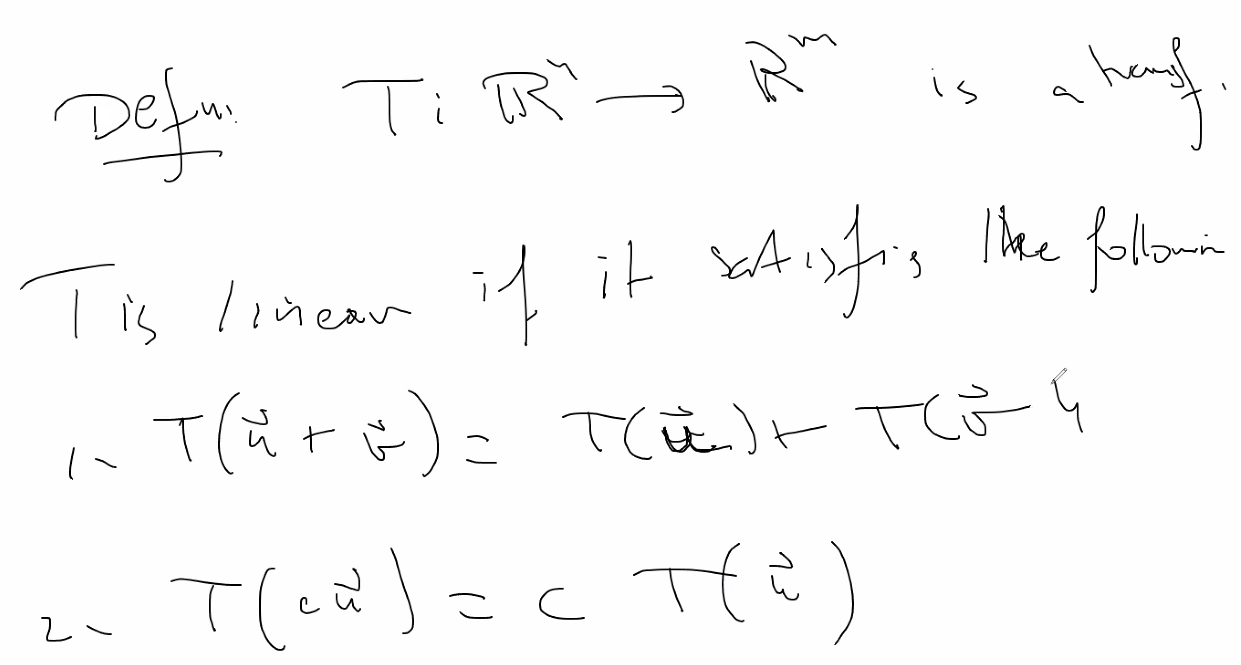 Defn: T: ℝⁿ → ℝᵐ is a transf.
T is linear if it satisfies the followin
1- T(u⃗ + v⃗) = T(u⃗) + T(v⃗)
2- T(cu⃗) = c T(u⃗)